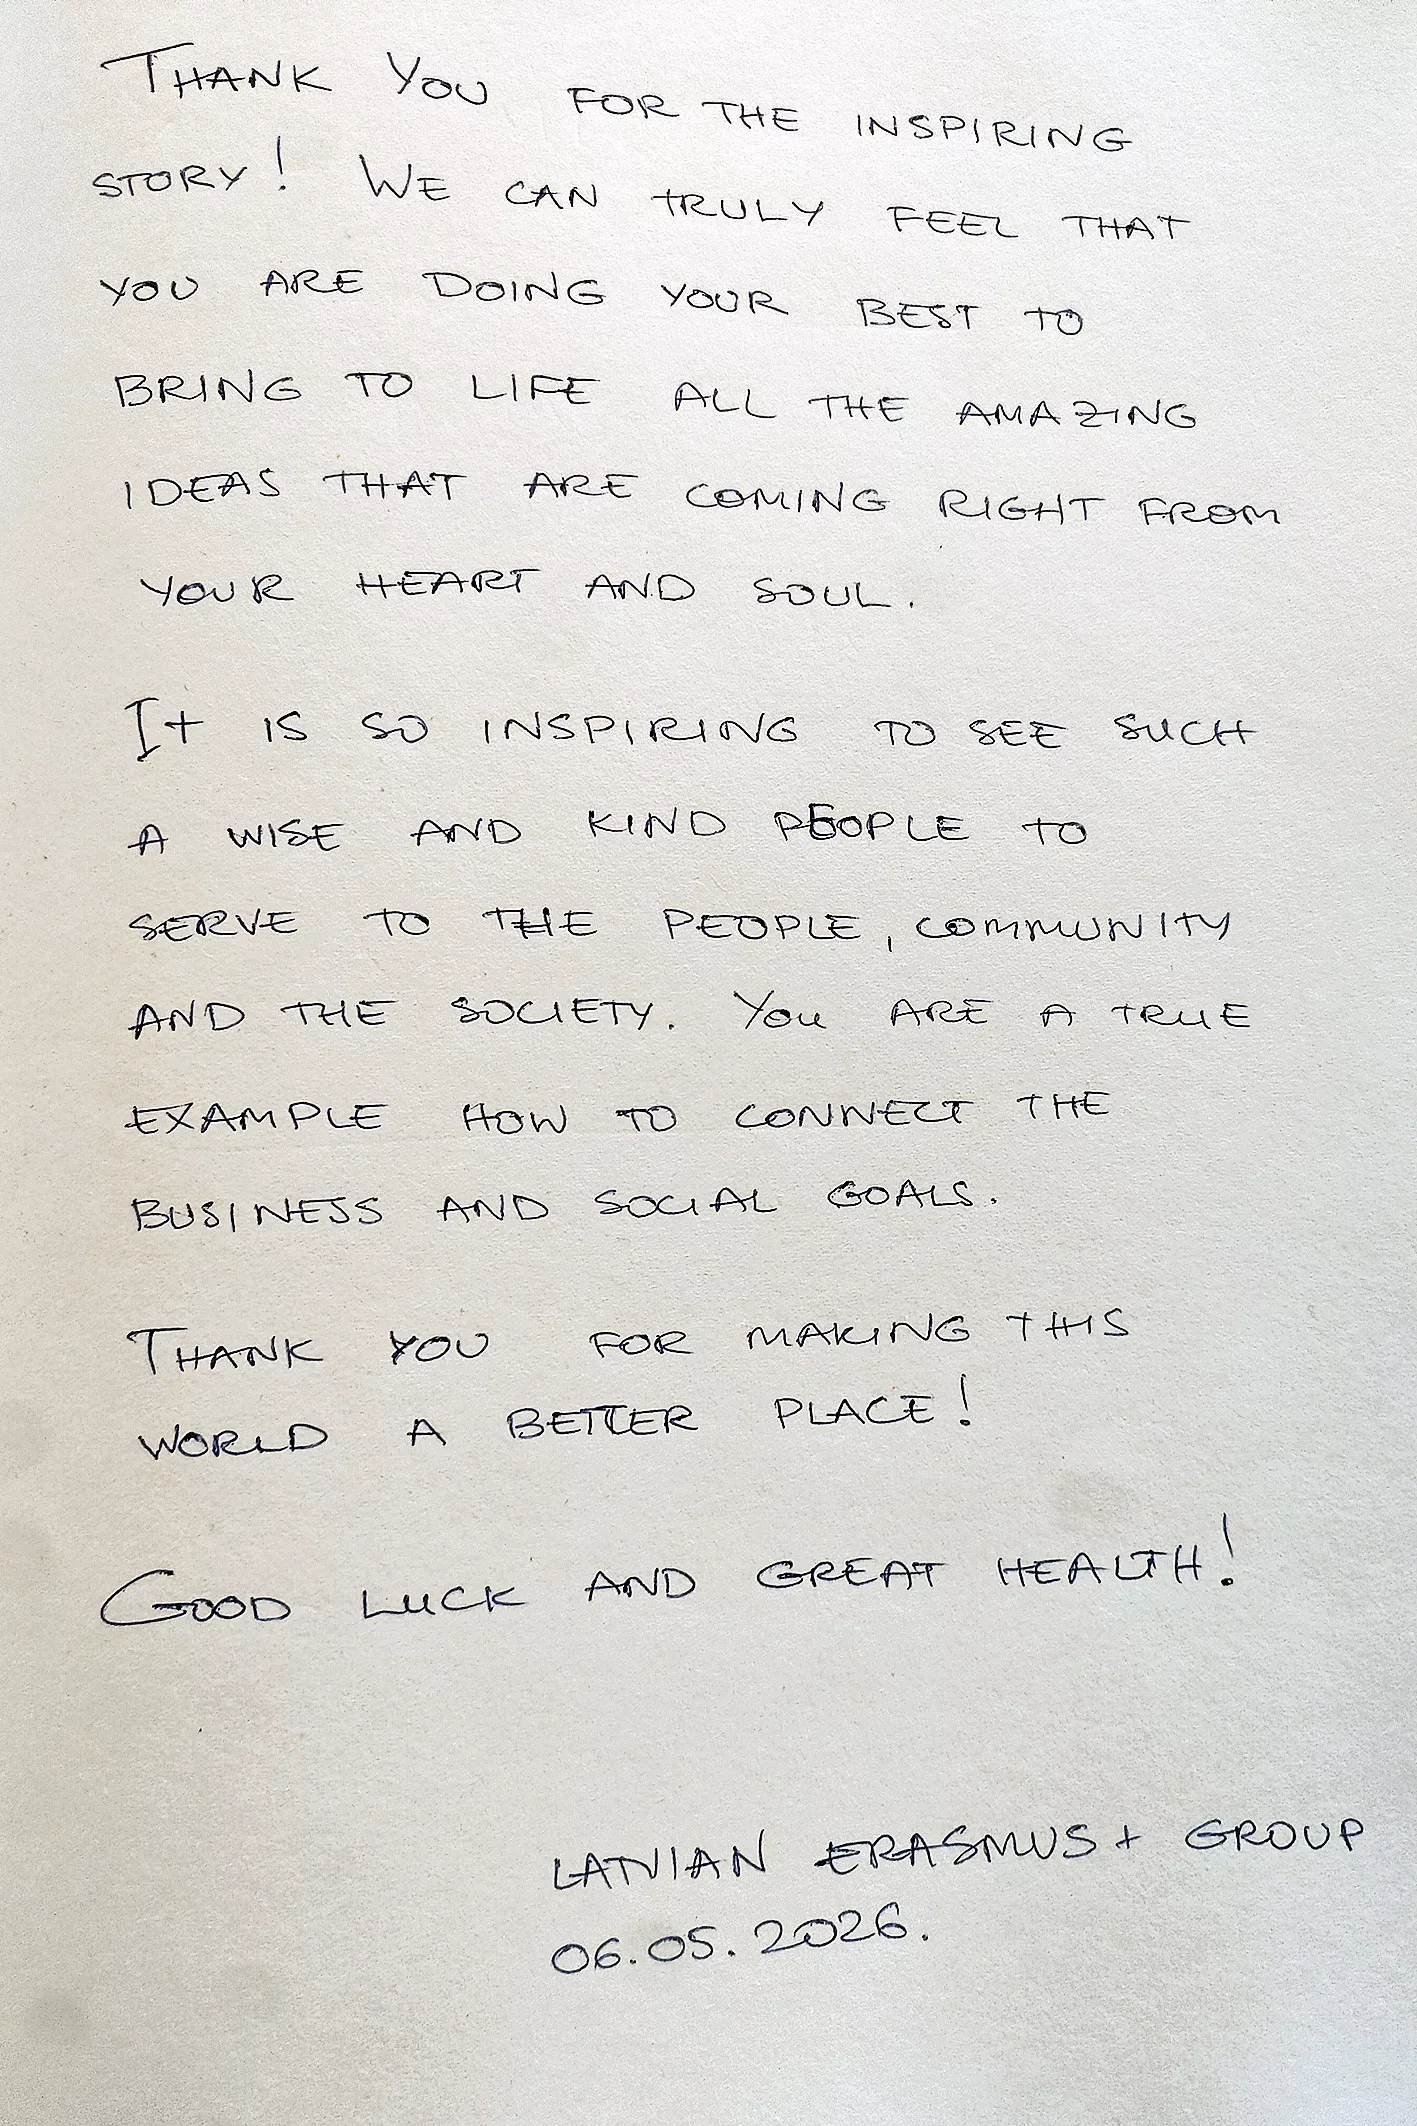 THANK YOU FOR THE INSPIRING
STORY! WE CAN TRULY FEEL THAT
YOU ARE DOING YOUR BEST TO
BRING TO LIFE ALL THE AMAZING
IDEAS THAT ARE COMING RIGHT FROM
YOUR HEART AND SOUL.
It IS SO INSPIRING TO SEE SUCH
A WISE AND KIND PEOPLE TO
SERVE TO THE PEOPLE, COMMUNITY
AND THE SOCIETY. YOU ARE A TRUE
EXAMPLE HOW TO CONNECT THE
BUSINESS AND SOCIAL GOALS.
THANK YOU FOR MAKING THIS
WORLD A BETTER PLACE!
GOOD LUCK AND GREAT HEALTH!
LATVIAN ERASMUS+ GROUP
06.05.2026.